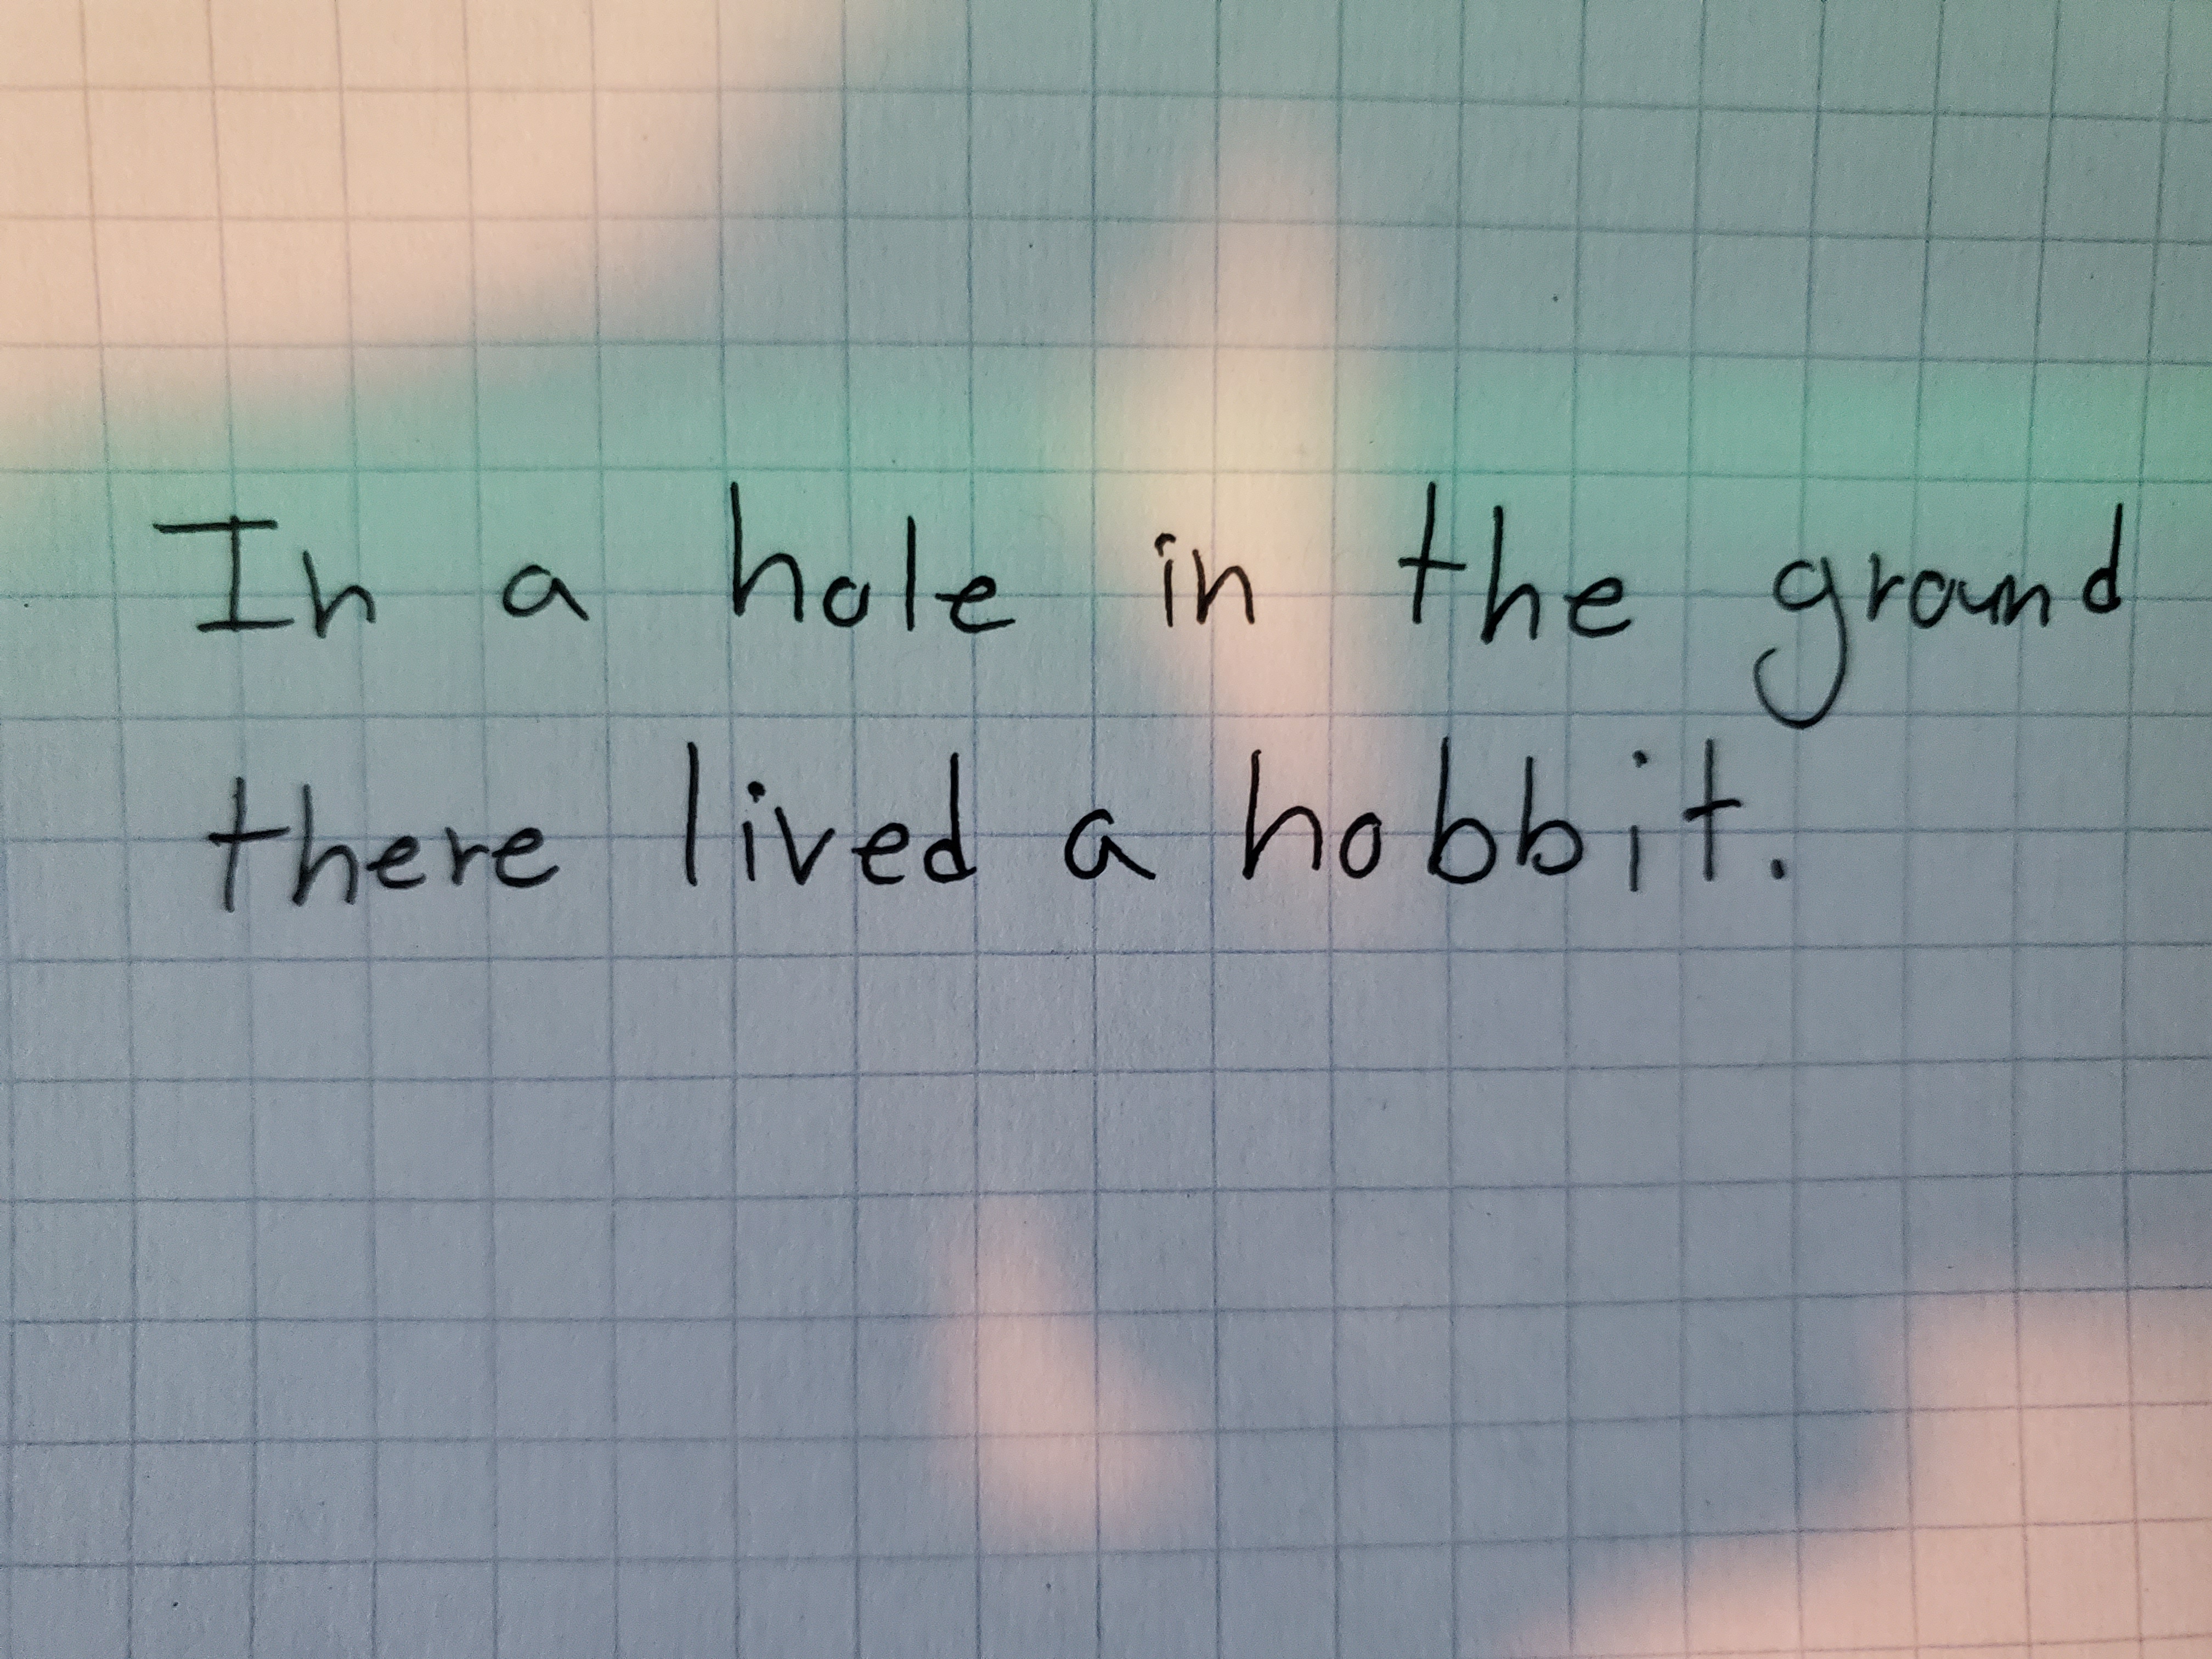 In a hole in the ground
there lived a hobbit.